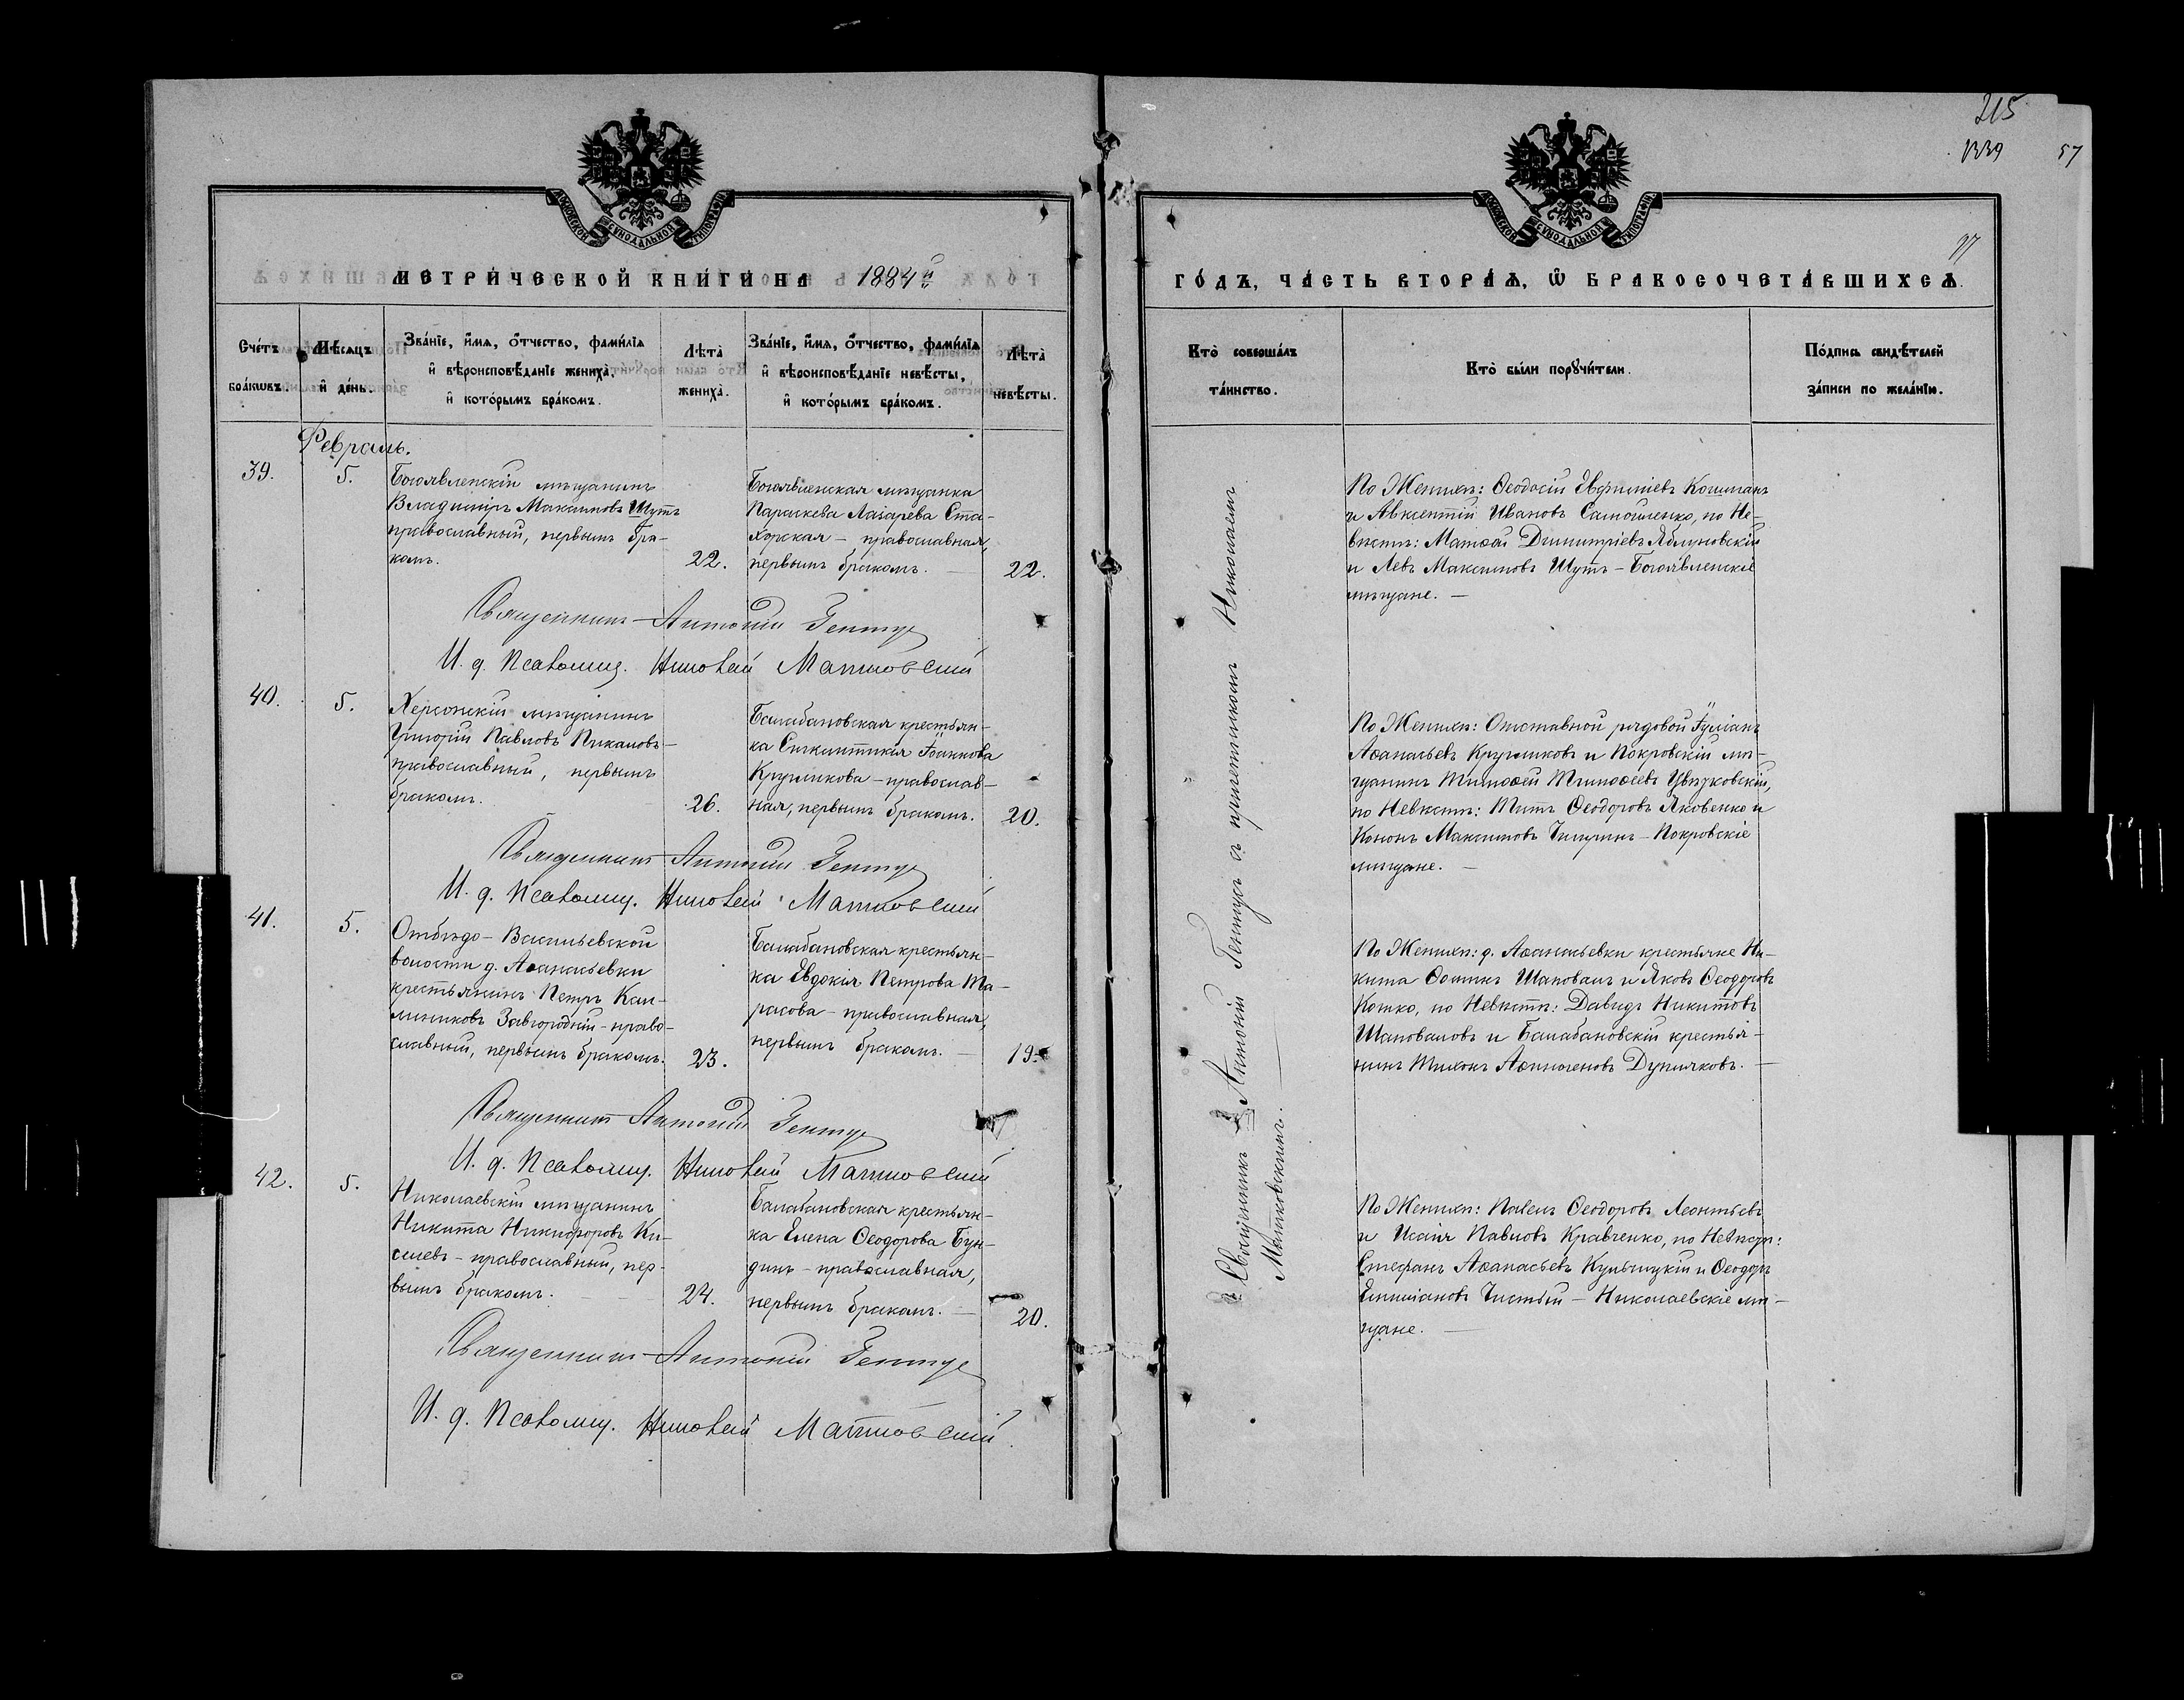 215
1339
57
97
МОСКОВСКОЙ СУНОДАЛЬНОЙ ТИПОГРАФІИ
МЕТРИ́ЧЕСКОЙ КНИ́ГИ НА 1884й
Сче́тъ бра́кѡвъ.
Мѣ́сяцъ и҆ де́нь.
Зва́нїе, и҆́мѧ, ѻ҆́тчество, фами́лїѧ
и҆ вѣроисповѣ́данїе жениха̀,
и҆ кото́рымъ бра́комъ.
Лѣта̀ жениха̀.
Зва́нїе, и҆́мѧ, ѻ҆́тчество, фами́лїѧ
и҆ вѣроисповѣ́данїе невѣ́сты,
и҆ кото́рымъ бра́комъ.
Лѣта̀ невѣ́сты.
Февраль.
39.
5.
Богоявленскій мѣщанинъ
Владиміръ Максимовъ Шутъ
православный, первымъ бра-
комъ.
22.
Богоявленская мѣщанка
Параскева Лазарева Ста-
хорская – православная,
первымъ бракомъ. —
22.
Священникъ Антоній Гентуе
И. д. Псаломщ. Николай Матковскій
40.
5.
Херсонскій мѣщанинъ
Григорій Павловъ Пикаловъ –
православный, первымъ
бракомъ.
26.
Балабановская крестьян-
ка Сигклитикія Іоаннова
Кругликова – православ-
ная, первымъ бракомъ.
20.
Священникъ Антоній Гентуе
И. д. Псаломщ. Николай Матковскій
41.
5.
Отбѣдо-Васильевской
волости д. Аѳанасьевки
крестьянинъ Петръ Кал-
линиковъ Завгородній – право-
славный, первымъ бракомъ.
23.
Балабановская крестьян-
ка Евдокія Петрова Та-
расова – православная,
первымъ бракомъ. —
19.
Священникъ Антоній Гентуе
И. д. Псаломщ. Николай Матковскій
42.
5.
Николаевскій мѣщанинъ
Никита Никифоровъ Ки-
селевъ – православный, пер-
вымъ бракомъ.
24.
Балабановская крестьян-
ка Елена Ѳеодорова Бун-
динъ – православная,
первымъ бракомъ. —
20.
Священникъ Антоній Гентуе
И. д. Псаломщ. Николай Матковскій
ГО́ДЪ, ЧА́СТЬ ВТОРА́Ѧ, Ѽ БРАКОСОЧЕТА́ВШИХСѦ.
Кто̀ соверша́лъ
та́инство.
Кто̀ бы́ли порꙋчи́тели.
По́дпись свидѣ́телей
за́писи по жела́нїю.
Священникъ Антоній Гентуе съ причетникомъ Николаемъ
Матковскимъ.
По Женихѣ: Ѳеодосій Евфиміевъ Кошманъ
и Авксентій Ивановъ Самойленко, по Не-
вѣстѣ: Матѳей Димитріевъ Яблуновскій
и Левъ Максимовъ Шутъ – Богоявленскіе
мѣщане. —
По Женихѣ: Отставной рядовой Іуліанъ
Аѳанасьевъ Кругликовъ и Покровскій мѣ-
щанинъ Тимоѳей Тимоѳеевъ Цвѣтковскій,
по Невѣстѣ: Титъ Ѳеодоровъ Яковенко и
Кононъ Максимовъ Чигринъ – Покровскіе
мѣщане. —
По Женихѣ: д. Аѳанасьевки крестьяне Ни-
кита Ѳоминъ Шаповалъ и Яковъ Ѳеодоровъ
Котко, по Невѣстѣ: Давидъ Никитовъ
Шаповаловъ и Балабановскій крестья-
нинъ Тихонъ Аѳиногеновъ Дупляковъ. —
По Женихѣ: Павелъ Ѳеодоровъ Леонтьевъ
и Исаія Павловъ Кравченко, по Невѣстѣ:
Стефанъ Аѳанасьевъ Кульчицкій и Ѳеодоръ
Емиліановъ Чистый – Николаевскіе мѣ-
щане. —